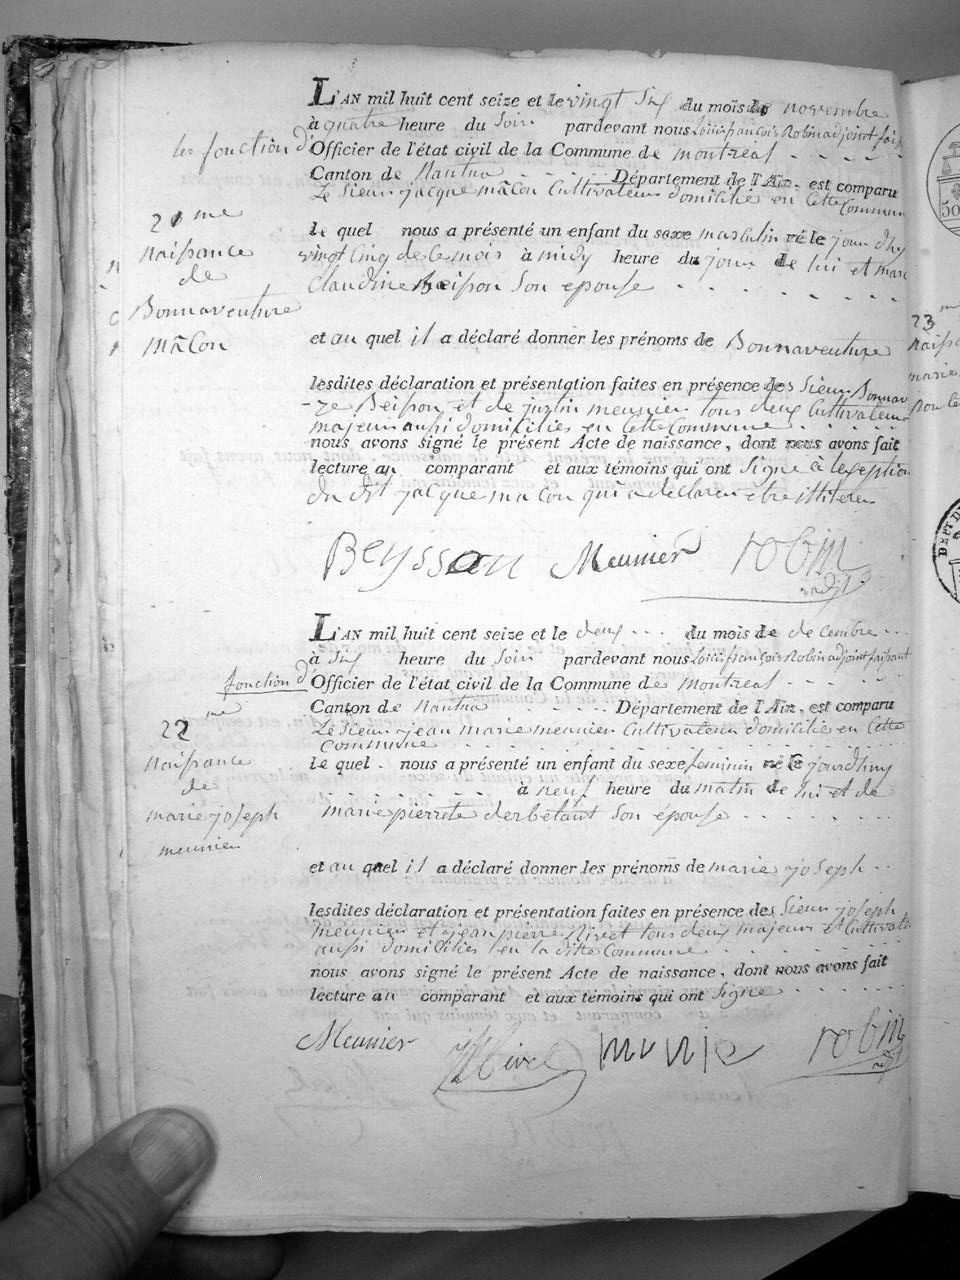 L'AN mil huit cent seize et le vingt Six du mois de novembre
à quatre heure du Soir pardevant nous Louis françois Robin adjoint fais
les fonction d'Officier de l'état civil de la Commune de montreal
Canton de Nantua Département de l'Ain, est comparu
Le Sieur jacque mâcon Cultivateur domicilié en Cette Commun
le quel nous a présenté un enfant du sexe masculin né le jour d'hy
vingt Cinq de Ce mois à midy heure du jour de lui et mari
Claudine Beisson Son epouse
21me
Naissance
de
Bonnaventure
mâcon
et au quel il a déclaré donner les prénoms de Bonnaventure
lesdites déclaration et présentation faites en présence des Sieur Bonnav
-re Beisson et de justin meunier tous deux Cultivateur
majeur aussi domiciliés en Cette Commune
nous avons signé le présent Acte de naissance, dont nous avons fait
lecture au comparant et aux témoins qui ont Signé à lexeption
du dit jacque macon qui a declarer etre illiterer
Beysson Meunier robin
adj.
L'AN mil huit cent seize et le deux du mois de decembre
à Six heure du Soir pardevant nous Louis françois Robin adjoint faisant
fonction d'Officier de l'état civil de la Commune de Montreal
Canton de Nantua Département de l'Ain, est comparu
Le Sieur jean marie meunier Cultivateur domicilié en Cette
Commune
le quel nous a présenté un enfant du sexe feminin né le jourdhuy
à neuf heure du matin de lui et de
marie pierrete derbetant Son épouse
22me
Naissance
de
marie joseph
meunier
et au quel il a déclaré donner les prénoms de marie joseph
lesdites déclaration et présentation faites en présence des Sieur joseph
meunier et jean pierre Nivet tous deux majeurs et Cultivat
aussi domiciliés en la ditte Commune
nous avons signé le présent Acte de naissance, dont nous avons fait
lecture au comparant et aux témoins qui ont Signé
Meunier Nivet munie robin
adj
23me
Naiss
marie